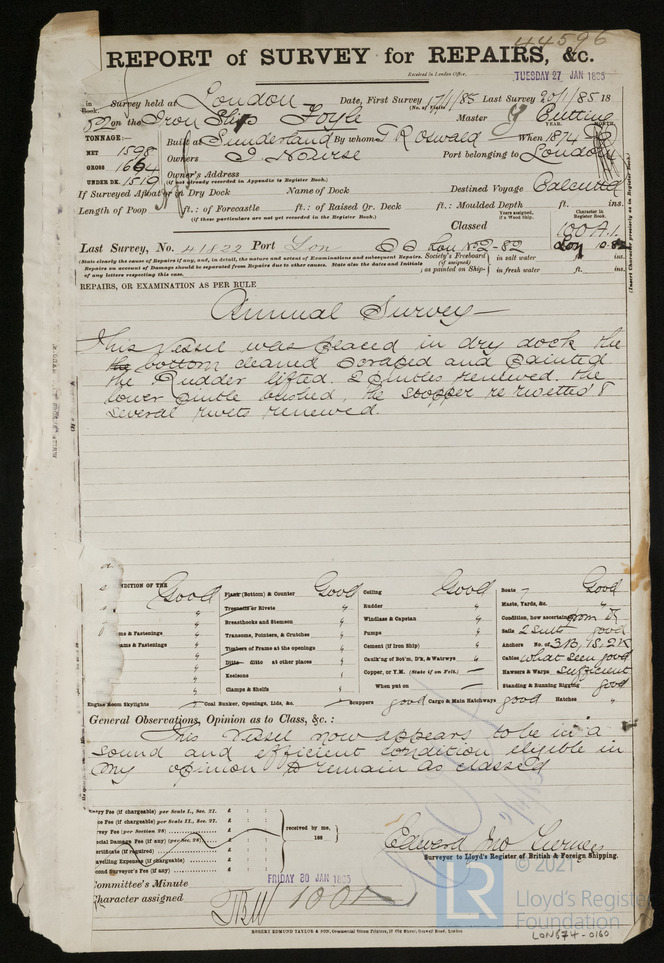 44596
REPORT of SURVEY for REPAIRS, &c.
Received in London Office, TUESDAY 27 JAN 1885
in Book Survey held at London Date, First Survey 17/1/85 Last Survey 20/1/85 18
on the Iron Ship Foyle Master
TONNAGE:— Built at Sunderland By whom T R Oswald When 1874
NET 1598
GROSS 1664 Owners J. Nourse Port belonging to London
UNDER DK. 1519 Owner's Address
(if not already recorded in Appendix to Register Book.)
If Surveyed Afloat or in Dry Dock Name of Dock Destined Voyage Calcutta
Length of Poop ft.: of Forecastle ft.: of Raised Qr. Deck ft.: Moulded Depth ft. ins.
(if these particulars are not yet recorded in the Register Book.)
Classed Years assigned, if a Wood Ship. Character in Register Book. 100 A.1.
Last Survey, No. 41822 Port Lon SS Lon No 2-82 Lon 10.82
(State clearly the cause of Repairs if any, and, in detail, the nature and extent of Examinations and subsequent Repairs.
Repairs on account of Damage should be separated from Repairs due to other causes. State also the dates and Initials
of any letters respecting this case.
Society's Freeboard (if assigned) as painted on Ship- in salt water ft. ins.
in fresh water ft. ins.
(Insert Character precisely as in Register Book.)
REPAIRS, OR EXAMINATION AS PER RULE
Annual Survey—
This Vessel was placed in dry dock the
the bottom cleaned scraped and painted
the Rudder lifted. 2 pintles renewed. the
lower pintle bushed, the stopper re rivetted &
several rivets renewed.
CONDITION OF THE Good Plank (Bottom) & Counter Good Ceiling Good Boats 7 Good
" Treenails or Rivets " Rudder " Masts, Yards, &c. "
" Breasthooks and Stemson " Windlass & Capstan " Condition, how ascertained from Dk
ms & Fastenings " Transoms, Pointers, & Crutches " Pumps " Sails 2 Suits good
ams & Fastenings " Timbers of Frame at the openings " Cement (if Iron Ship) " Anchors No. of 3B, 1S, 2K
" Ditto ditto at other places " Caulk'ng of Bot'm, D'k, & Waterwys " Cables what seen good
" Keelsons " Copper, or Y.M. (State if on Felt.) — Hawsers & Warps sufficient
" Clamps & Shelfs " When put on — Standing & Running Rigging good
Engine Room Skylights Coal Bunker, Openings, Lids, &c. Scuppers good Cargo & Main Hatchways good Hatches "
General Observations, Opinion as to Class, &c.:
This Vessel now appears to be in a
sound and efficient condition eligible in
my opinion to remain as classed
Entry Fee (if chargeable) per Scale I., Sec. 27. £ : :
ce Fee (if chargeable) per Scale II., Sec. 27. £ : :
rvey Fee (per Section 28) £ : :
ecial Damage Fee (if any) (per Sec. 28) £ : : received by me,
ertificate (if required) £ : : 188
avelling Expenses (if chargeable) £ : :
cond Surveyor's Fee (if any) £ : :
Surveyor to Lloyd's Register of British & Foreign Shipping.
Committee's Minute FRIDAY 30 JAN 1885
Character assigned 100A1
ROBERT EDMUND TAYLOR & SON, Commercial Steam Printers, 19 Old Street, Goswell Road, London
© 2021
LR
Lloyd's Register
Foundation
LON674-0160